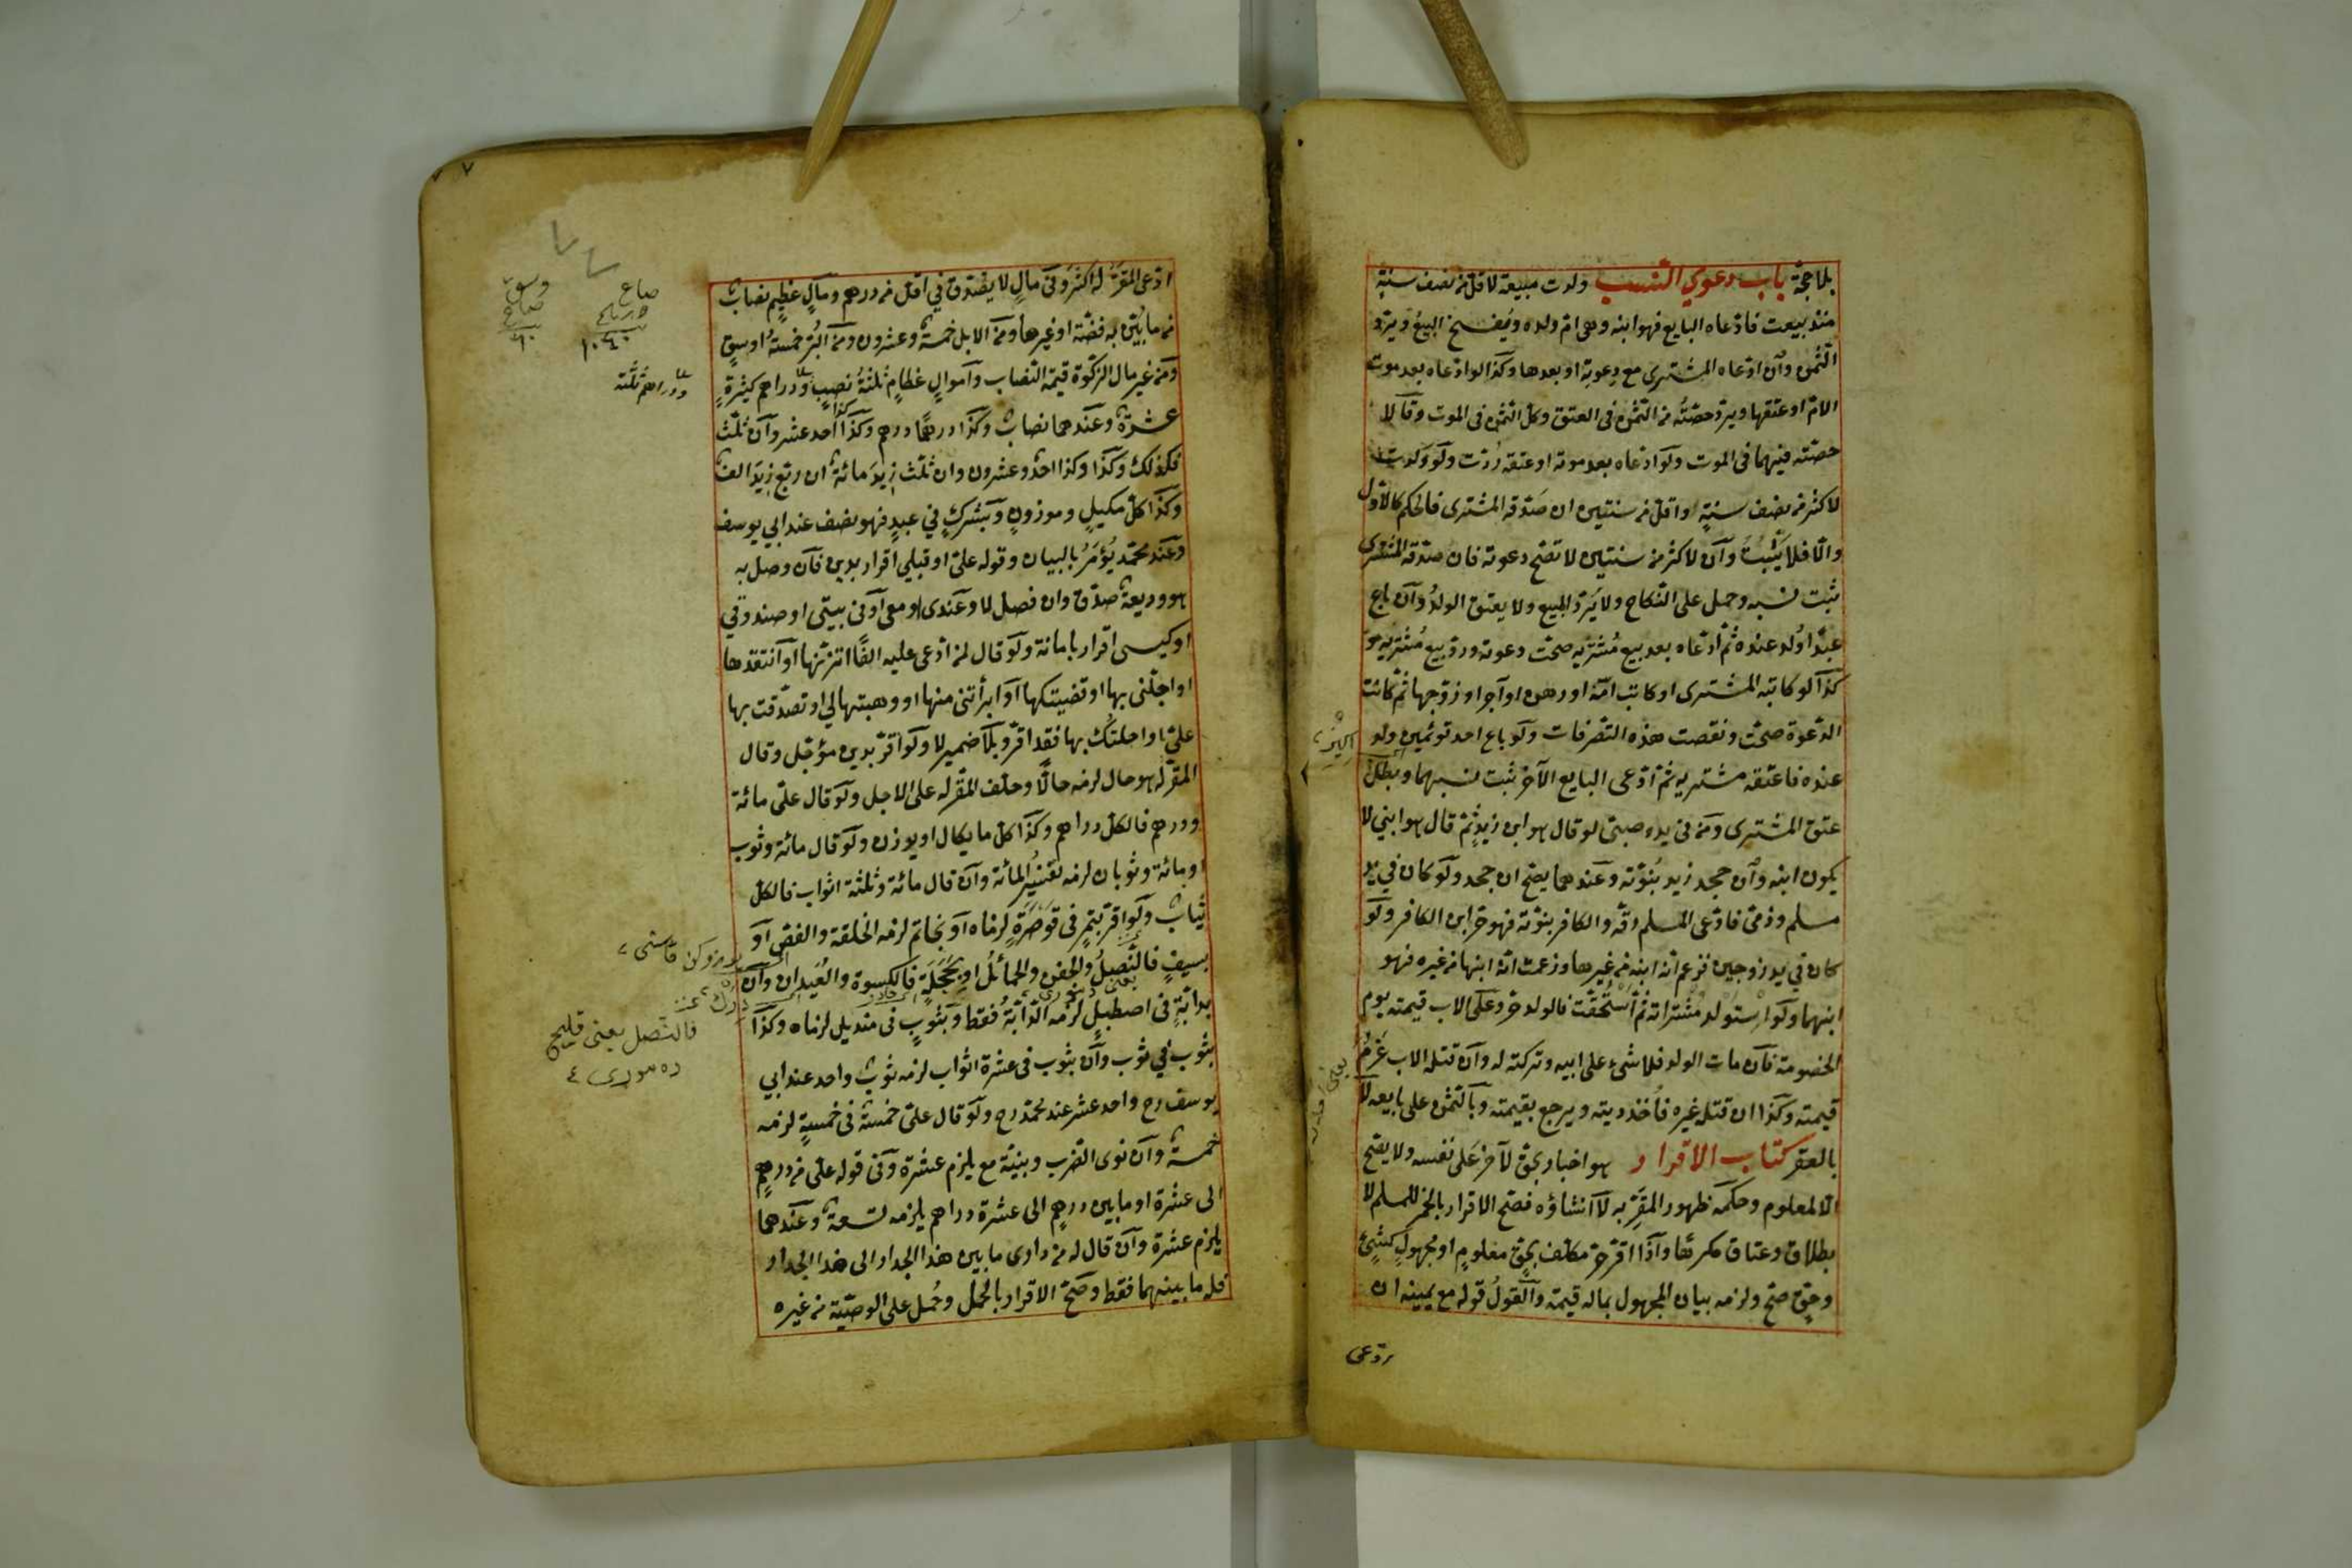 بلا حجة باب دعوي النسب ولدت مبيعة لاقل من نصف سنة
منذ بيعت فادعاه البايع فهو ابنه وهي ام ولده ويفسخ البيع ويرد
الثمن وان ادعاه المشتري مع دعوته او بعدها وكذا لو ادعاه بعد موت
الام او عتقها ويرد حصته من الثمن في العتق وكل الثمن في الموت وقالا
حصته فيهما في الموت ولو ادعاه بعد موته او عتقه ردت ولو ولدت
لاكثر من نصف سنة واقل من سنتين ان صدقه المشتري فالحكم كالاول
والا فلا يثبت وان لاكثر من سنتين لا تصح دعوته فان صدقه المشتري
ثبت نسبه وحمل على النكاح ولا يرد البيع ولا يعتق الولد وان باع
عبدا ولد عنده ثم ادعاه بعد بيع مشتريه صحت دعوته ورد بيع مشتريه
كذا لو كاتبه المشتري او كاتب امه او رهن او آجر او زوجها ثم كانت
الدعوة صحت ونقضت هذه التصرفات ولو باع احد توئمين ولد
عنده فاعتقه مشتريه ثم ادعى البايع الآخر ثبت نسبهما وبطل
عتق المشتري ومن في يده صبي لو قال هو ابن زيد ثم قال هو ابني لا
يكون ابنه وان جحد زيد بنوته وعندهما يصح ان جحد ولو كان في يد
مسلم وذمي فادعى المسلم رقه والكافر بنوته فهو حر ابن الكافر ولو
كان في يد زوجين فزعم انه ابنه من غيرها وزعمت انه ابنها من غيره فهو
ابنهما ولو استولد مشتراته ثم استحقت فالولد حر وعلى الاب قيمته يوم
الخصومة فان مات الولد فلا شئ على ابيه وتركته له وان قتله الاب غرم
قيمته وكذا ان قتله غيره فاخذ ديته ويرجع بقيمته وبالثمن على بايعه لا
بالعقر كتاب الاقرار هو اخبار بحق لآخر على نفسه ولا يصح
الا لمعلوم وحكمه ظهور المقر به لا انشاؤه فصح الاقرار بالخمر للمسلم لا
بطلاق وعتاق مكرها واذا اقر حر مكلف بحق معلوم او مجهول كشئ
وحق صح ولزمه بيان المجهول بما له قيمة والقول قوله مع يمينه ان
ادعى المقر له اكثر وفي مال لا يصدق في اقل من درهم ومال عظيم نصاب
من ما بين به فضة او غيرها ومن الابل خمسة وعشرون ومن البر خمسة اوسق
ومن غير مال الزكوة قيمة النصاب واموال عظام ثلثة نصب ودراهم كثيرة
عشرة وعندهما نصاب وكذا درهما درهم وكذا كذا احد عشر وان ثلث
فكذلك وكذا وكذا احد وعشرون وان ثلث زيد مائة ان ربع زيد الف
وكذا كل مكيل وموزون وبشرك في عبد فهو نصف عند ابي يوسف
وعند محمد يؤمر بالبيان وقوله علي او قبلي اقرار بدين فان وصل به
هو وديعة صدق وان فصل لا وعندي او معي او في بيتي او صندوقي
او كيسي اقرار بامانة ولو قال لمن ادعى عليه الفا اتزنها او انتقدها
او اجلني بها او قضيتكها او ابرأتني منها او وهبتها لي او تصدقت بها
علي او احلتك بها فقد اقر وبلا ضمير لا ولو اقر بدين مؤجل وقال
المقر له هو حال لزمه حالا وحلف المقر له على الاجل ولو قال علي مائة
ودرهم فالكل دراهم وكذا كل ما يكال او يوزن ولو قال مائة وثوب
او مائة وثوبان لزمه تفسير المائة وان قال مائة وثلثة اثواب فالكل
ثياب ولو اقر بتمر في قوصرة لزماه او بخاتم لزمه الحلقة والفص او
بسيف فالنصل والجفن والحمائل او بحجلة فالكسوة والعيدان وان
بدابة في اصطبل لزمه الدابة فقط وبثوب في منديل لزماه وكذا
بثوب في ثوب وان بثوب في عشرة اثواب لزمه ثوب واحد عند ابي
يوسف رح واحد عشر عند محمد رح ولو قال علي خمسة في خمسة لزمه
خمسة وان نوى الضرب وبنية مع يلزم عشرة وفي قوله علي من درهم
الى عشرة او ما بين درهم الى عشرة دراهم يلزمه تسعة وعندهما
يلزم عشرة وان قال له من داري ما بين هذا الجدار الى هذا الجدار
فله ما بينهما فقط وصح الاقرار بالحمل وحمل على الوصية من غيره
وسق
صاع
٦٠
صاع
١٠٤٠
ودراهم ثلثة
فالنصل يعني قليج
ده موري